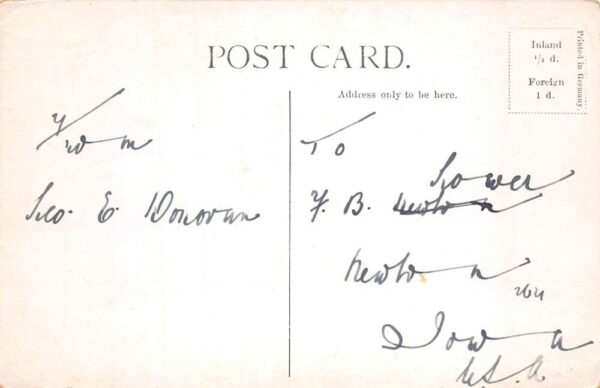 POST CARD.
Address only to be here.
Inland
½ d.
Foreign
1 d.
Printed in Germany.
From
Geo. E. Donovan
To
Lower
F. B. Newton
Newton
Iowa
U.S.A.